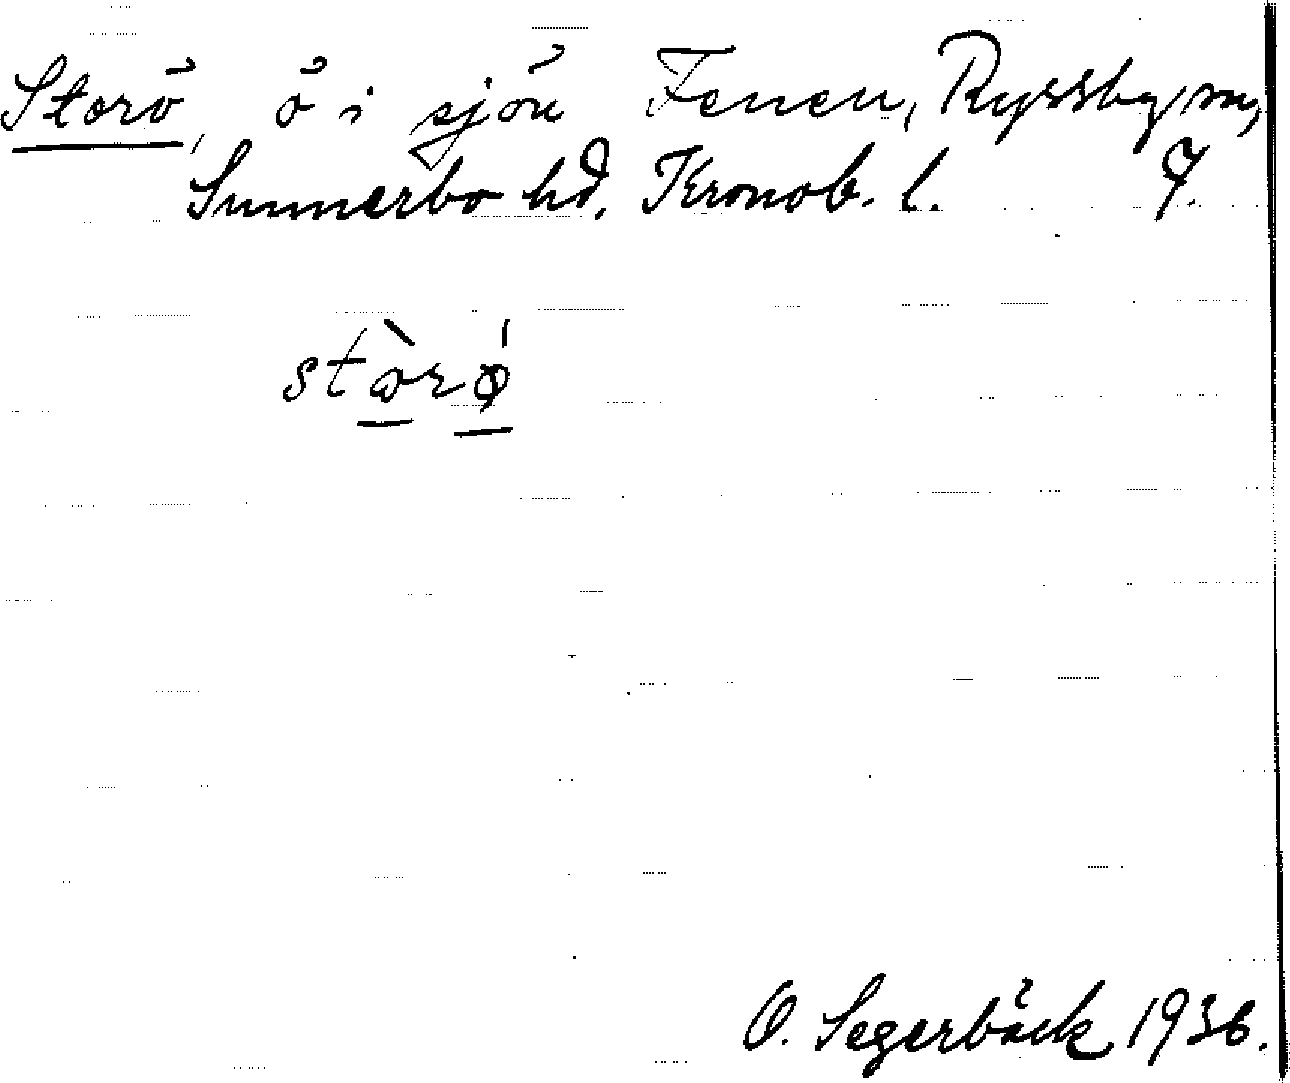 Storö, ö i sjön Fenen, Ryssby sn,
Sunnerbo hd. Kronob. l.
stòrǿ
O. Segerbäck 1936.